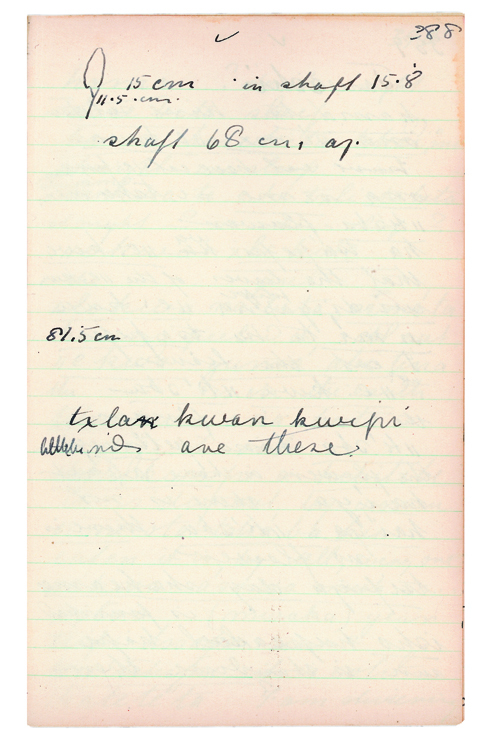 388
15 cm in shaft 15.8
11.5 cm.
shaft 68 cm, ap.
81.5 cm
kwan kwipi
are these